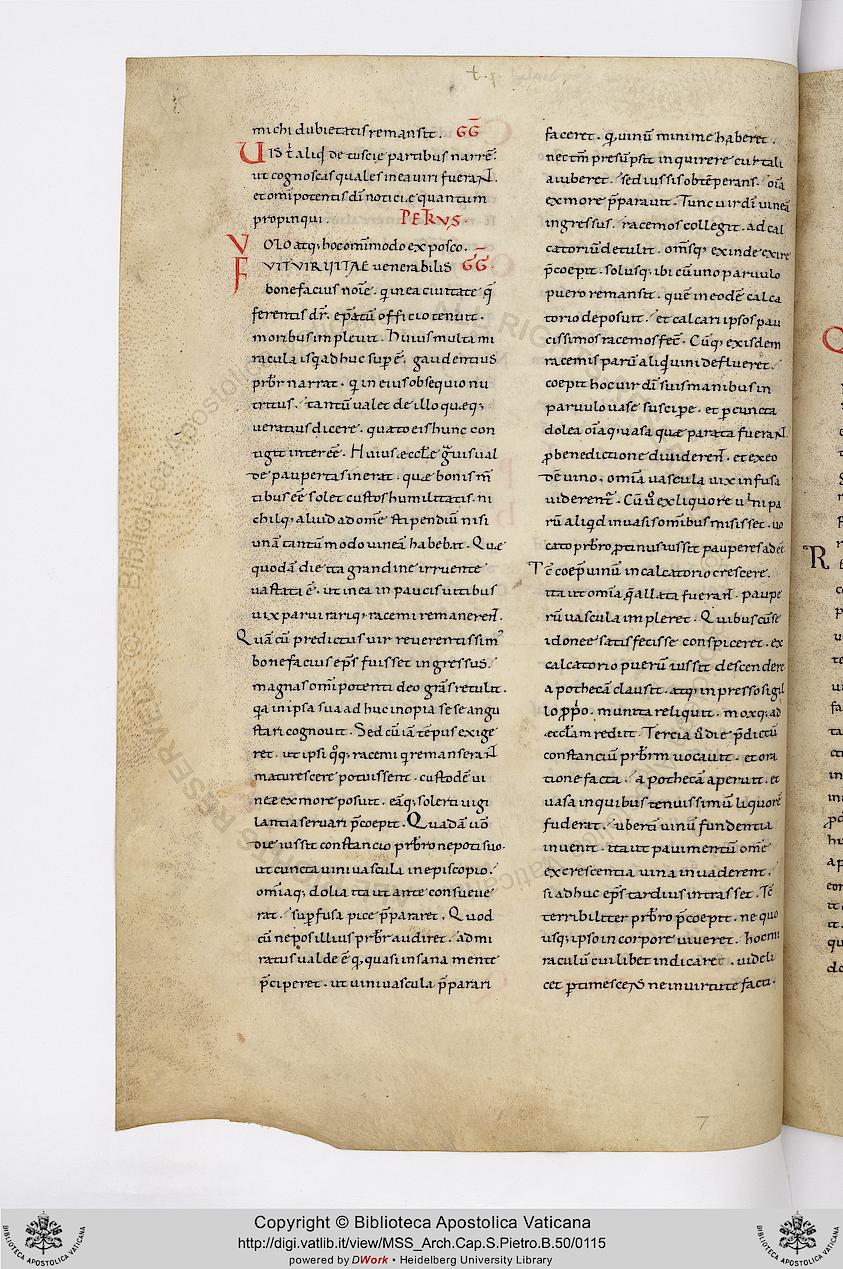 michi dubietatis remansit. GḠ
Uis t̄ aliq̄ de tuscie partibus narrē:
ut cognoscas quales in ea viri fuerant.
et omīpotentis dī noticie quantum
propinqui. PETRVS.
VOLO atq; hoc omīmodo exposco.
FVIT VIR VITAE venerabilis GḠ.
bonefacius noīe. q in ea civitate q̄
ferentis dr̄. ep̄atū officio tenuit.
moribus implevit. Huius multa mi
racula is q adhuc sup ē. gaudentius
prb̄r narrat. q in eius obsequio nu
tritus. tantū valet de illo quęq;
veratius dicere. quāto eis hunc con
tigit interēē. Huius ęccl̄e gͣuis val
de paupertas inerat. quae bonis m̄
tibus eē solet custos humilitatis. ni
chilq; aliud ad omē stipendiū nisi
unā tantūmodo vineā habebat. Quę
quodā die ita grandine irruente
vastata ē. ut in ea in paucis vitibus
vix parvi rariq; racemi remanerent.
Quā cū predictus vir reverentissim᾽
bonefacius ep̄s fuisset ingressus.
magnas omīpotenti deo grās retulit.
qa in ipsa sua adhuc inopia sese angu
stari cognovit. Sed cū iā tēpus exige
ret. ut ipsi q̊q; racemi q remanserant
maturescere potuissent. custodē vi
neę ex more posuit. eāq; solerti vigi
lantia servari p̄coepit. Quadā v̄o
die iussit constancio prb̄ro nepoti suo.
ut cuncta vini vascula in episcopio.
omīaq; dolia ita ut ante consueve
rat. sup fusa pice p̄pararet. Quod
cū nepos illius prb̄r audiret. admi
ratus valde ē. q, quasi insana mente
p̄ciperet. ut vini vascula p̄parari
faceret. q, vinū minime haberet.
nec tm̄ presūpsit inquirere cur tali
a iuberet. sed iussis obtēperans. oīa
ex more p̄paravit. Tunc vir dī vineā
ingressus. racemos collegit. ad cal
catoriū detulit. omīsq; exinde exire
p̄coepit. solusq; ibi cū uno parvulo
puero remansit. quē in eodē calca
torio deposuit. et calcari ipsos pau
cissimos racemos fec̄. Cūq; ex isdem
racemis parū aliqd vini deflueret.
coepit hoc vir dī suis manibus in
parvulo vase suscipe. et p cuncta
dolea oīaq; vasa quę parata fuerant.
p benedictione dividerent. et ex eo
dē vino. omīa vascula vix infusa
viderentur. Cū v̊ ex liquore vini pa
rū aliqd in vasis omībus misisset. vo
cato prb̄ro ptinus iussit pauperes adeē
Tc̄ coep̄ vinū in calcatorio crescere.
ita ut omīa q̄ allata fuerant. paupe
rū vascula impleret. Quibus cū se
idonee satisfecisse conspiceret. ex
calcatorio puerū iussit descendere
apothecā clausit. atq; inpresso sigil
lo pp̊o. munita reliquit. moxq; ad
ęccl̄am rediit. Tercia v̊ die p̄dictū
constanciū prb̄rm vocavit. et ora
tione facta. apothecā aperuit. et
vasa in quibus tenuissimū liquorē
fuderat. ubertī vinū fundentia
invenit. ita ut pavimentū omē
excrescentia vina invaderent.
si adhuc ep̄s tardius intrasset. Tc̄
terribiliter prb̄ro p̄coepit. ne quo
usq; ipso in corpore viveret. hoc mi
raculū cuilibet indicaret. videli
cet ptimescens ne in virtute facti.
7
Copyright © Biblioteca Apostolica Vaticana
http://digi.vatlib.it/view/MSS_Arch.Cap.S.Pietro.B.50/0115
powered by DWork • Heidelberg University Library